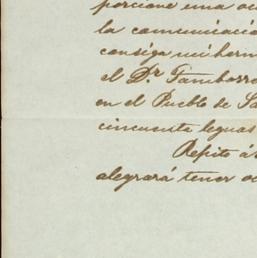 porcione una oc
la comunicació
consiga mi herm
el Dr Tamborr
en el Pueblo de Sa
cincuenta leguas
Repito á
alegrará tener oc